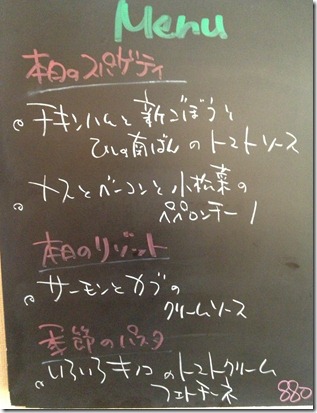 Menu
本日のスパゲティ
チキンハムと新ごぼうと
の南ばんのトマトソース
ナスとベーコンと小松菜の
ペペロンチーノ
本日のリゾット
サーモンとカブの
クリームソース
季節のパスタ
いろいろキノコのトマトクリーム
フェトチーネ
880